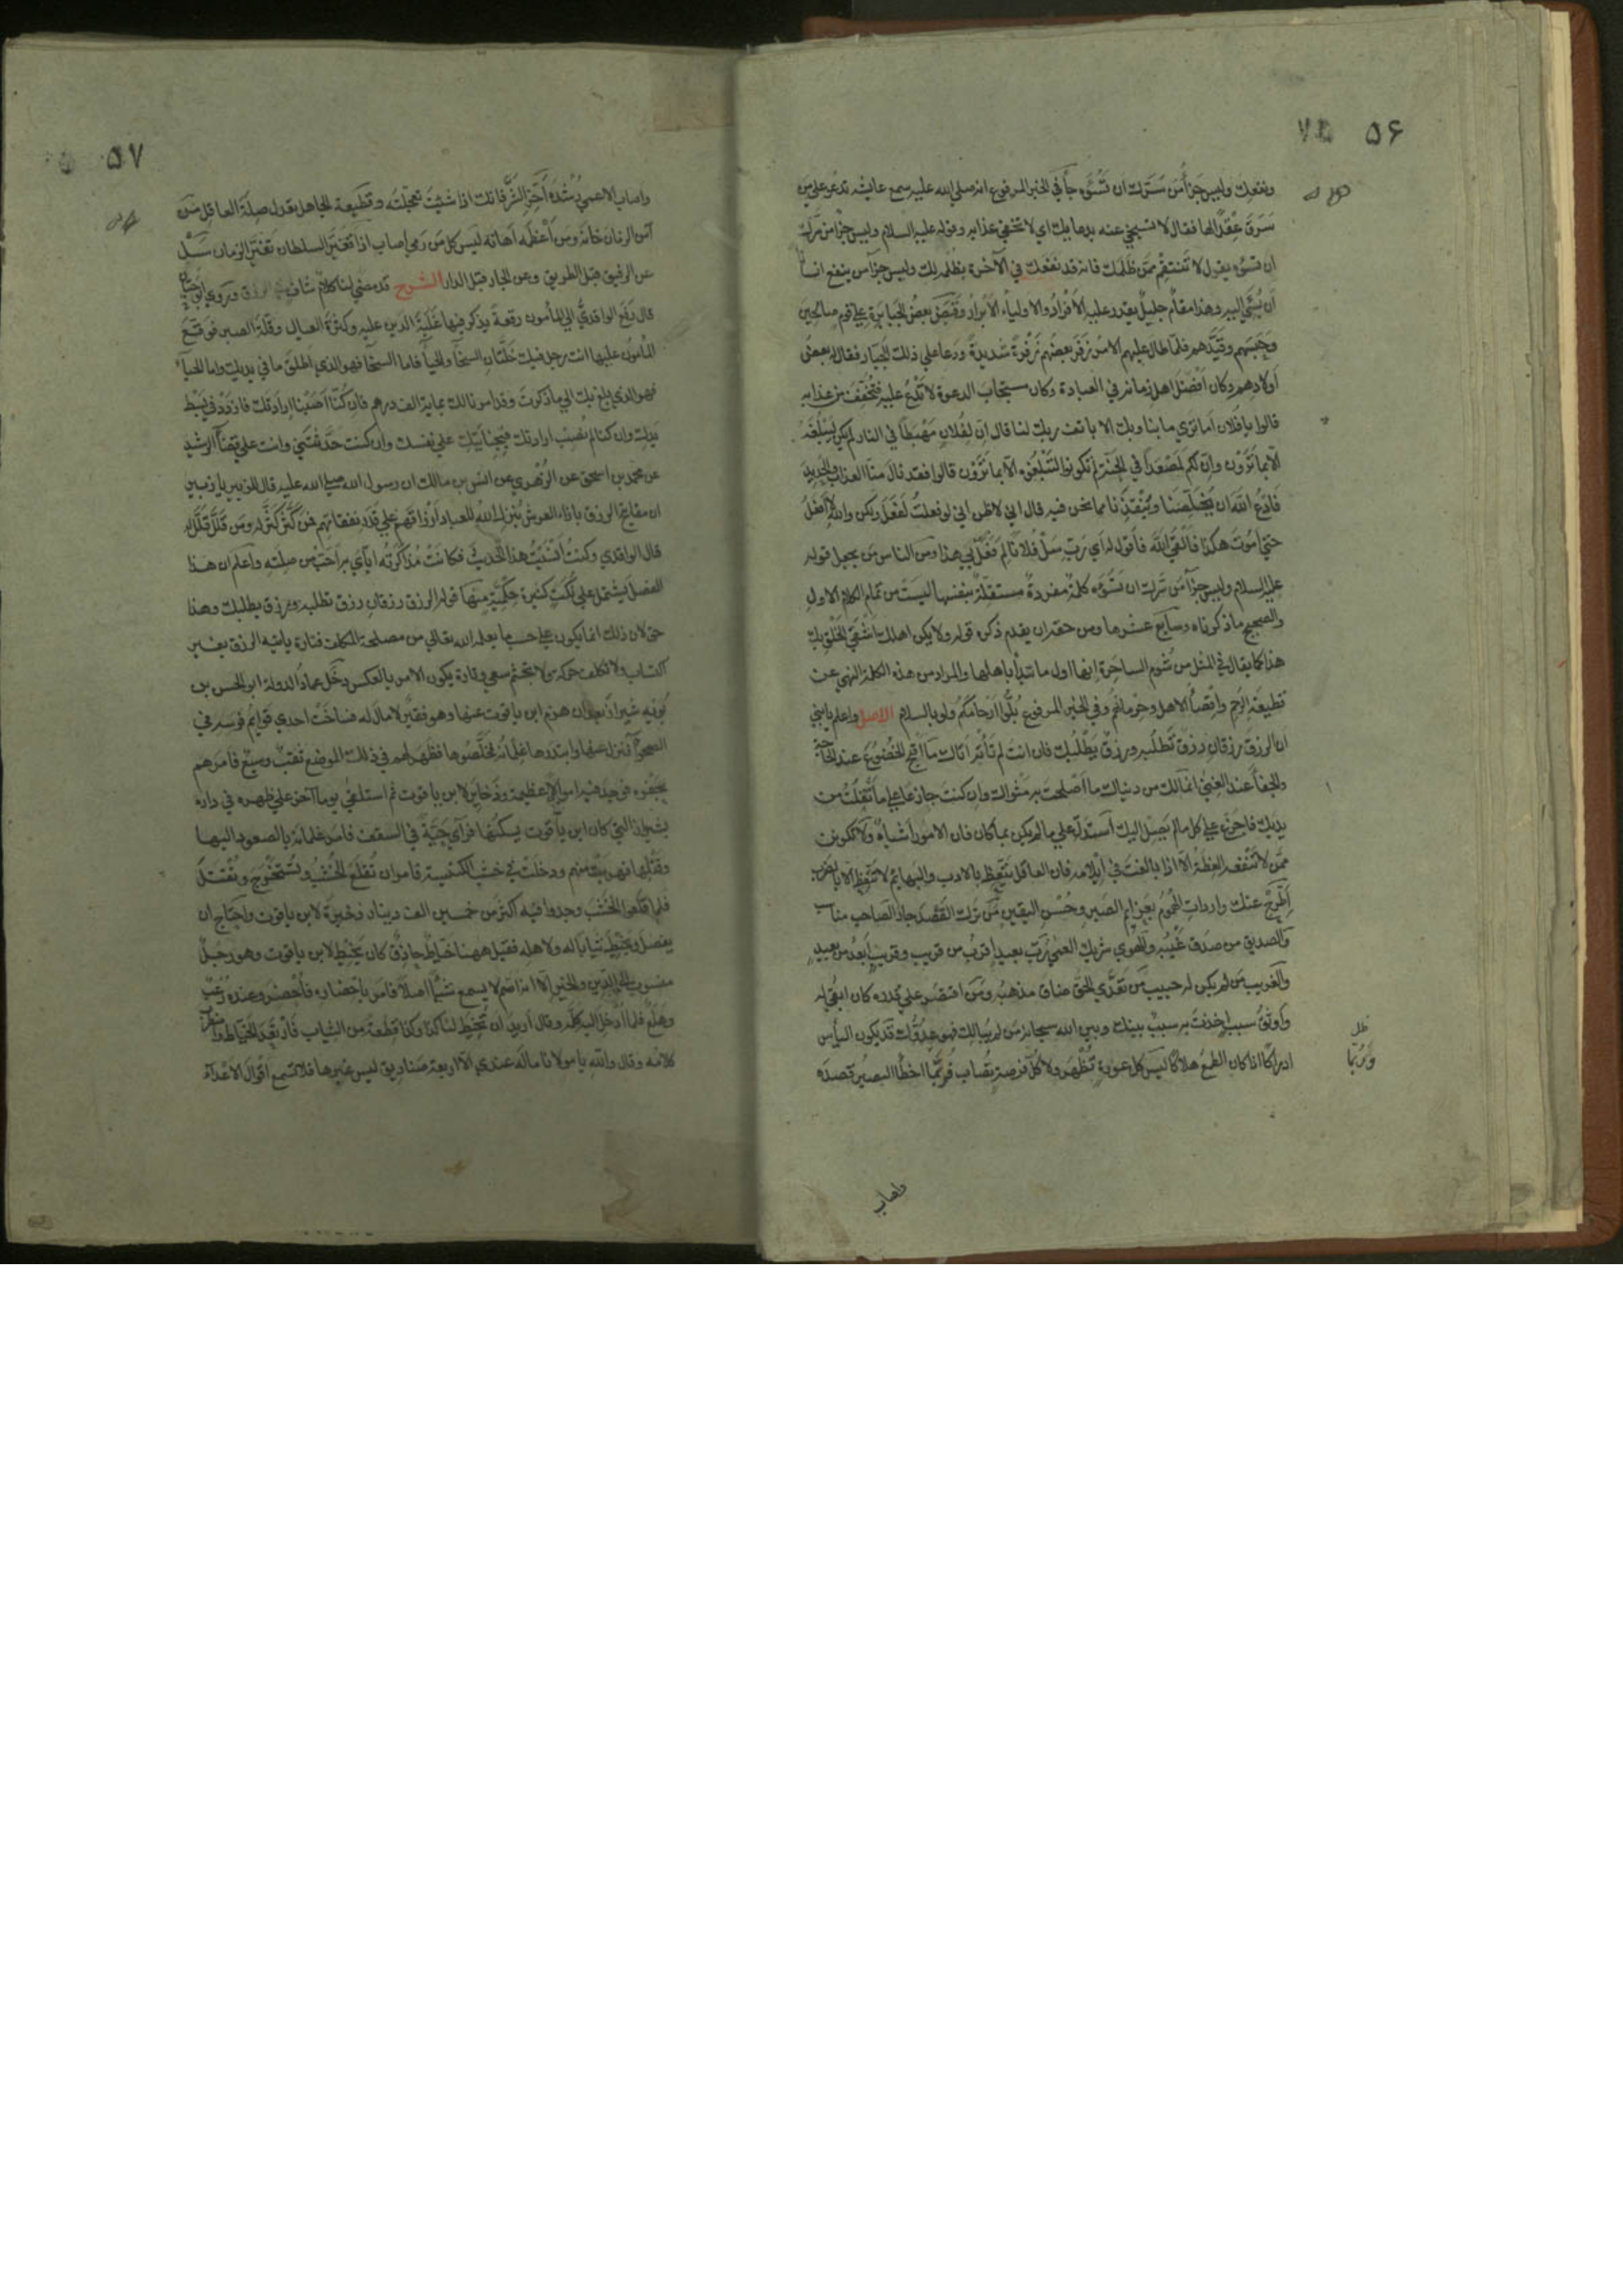 ۵۶
ونفعك وليس جزأ من سرّك ان تسوّه جآ في الخبر المرفوع انه صلي الله عليه سمع عايشه تدعو علي من
سرق عِقْدًا لها فقال لا تسبخي عنه بدعايك اي لا تخففي عذابه وقوله عليه السلام وليس جزأ من سرّك
ان تسوّه يقول لا تنتقم ممن ظلمك فانه قد نفعك في الآخرة بظلمه لك وليس جزآ من ينفع انسانا
ان يسيٓ اليه وهذا مقام جليل لا يقدر عليه الا الافراد والاولياء الابرار وقبض بعض الجبابرة علي قوم صالحين
وحبسهم وقيّدهم فلما طال عليهم الامر زفر بعضهم زفرة شديدة ودعا علي ذلك الجبار فقال له بعض
اولادهم وكان افضل اهل زمانه في العبادة وكان مستجاب الدعوة لا تدع عليه فتخفف من عذابه
قالوا يا فلان اما تري ما بنا وبك الا يانف ربك لنا قال ان لفلان مهبطا في النار لم يكن ليبلغه
الا بما ترون وان لكم لمصعدا في الجنة لم تكونوا لتبلغوه الا بما ترون قالوا فقد نال منا العذاب والحديد
فادع الله ان يخلّصنا وينقذنا مما نحن فيه قال اني لاظن اني لو فعلت لفعل ولكن والله لا افعل
حتي اموت هكذا فالقي الله فاقول له اي ربّ سل فلانا لم فعل بي هذا ومن الناس من يجعل قوله
عليه السلام وليس جزآ من سرّك ان تسوّه كلمة مفردة مستقلة بنفسها ليست من تمام الكلام الاول
والصحيح ما ذكرناه وسابع عشرها ومن حقه ان يقدم ذكره قوله ولا يكن اهلك اشقي الخلق بك
هذا كما يقال في المثل من شوم الساحرة انها اول ما تبدأ باهلها والمراد من هذه الكلمة النهي عن
قطيعة الرحم واقصآ الاهل وحرمانهم وفي الخبر المرفوع بُلّوا ارحامكم ولو بالسلام الاصل واعلم يا بني
ان الرزق رزقان رزق تطلبه ورزق يطلبك فان انت لم تأته اتاك ما اقبح الخضوع عند الحاجة
والجفآ عند الغني انما لك من دنياك ما اصلحت به مثواك وان كنت جازعا علي ما تفلّت من
يديك فاجزع علي كل ما لم يصل اليك استدلّ علي ما لم يكن بما كان فان الامور اشباه ولا تكونن
ممن لا تنفعه العظة الا اذا بالغت في ايلامه فان العاقل يتعظ بالادب والبهايم لا تتعظ الا بالضرب
اطرح عنك واردات الهموم بعزايم الصبر وحسن اليقين من ترك القصد جار الصاحب مناسب
والصديق من صدق غيبه والهوي شريك العمي ربّ بعيد اقرب من قريب وقريب ابعد من بعيد
والغريب من لم يكن له حبيب من تعدّي الحق ضاق مذهبه ومن اقتصر علي قدره كان ابقي له
واوثق سبب اخذت به سبب بينك وبين الله سبحانه من لم يبالك فهو عدوّك قد يكون اليأس
ادراكا اذا كان الطمع هلاكا ليس كل عورة تظهر ولا كل فرصة تصاب فربّما اخطأ البصير قصده
ظل
وربما
واصاب
۵۷
واصاب الاعمي رشده اخّر الشرّ فانك اذا شيت تعجلته وقطيعة الجاهل تعدل صلة العاقل من
امن الزمان خانه ومن اعظمه اهانه ليس كل من رمي اصاب اذا تغيّر السلطان تغيّر الزمان سل
عن الرفيق قبل الطريق وعن الجار قبل الدار الشرح قد مضي لنا كلام شاف في الرزق وروي ابو حيان
قال رفع الواقدي الي المأمون رقعة يذكر فيها غلبة الدَين عليه وكثرة العيال وقلة الصبر فوقّع
المأمون عليها انت رجل فيك خلّتان السخآ والحيآ فاما السخآ فهو الذي اطلق ما في يديك واما الحيآ
فهو الذي بلغ بك الي ما ذكرت وقد امرنا لك بماية الف درهم فان كنا اصبنا ارادتك فازدد في بسط
يدك وان كنا لم نصب ارادتك فبجنايتك علي نفسك وانت كنت حدثتني وانت علي قضآ الرشيد
عن محمد بن اسحق عن الزهري عن انس بن مالك ان رسول الله صلي الله عليه قال للزبير يا زبير
ان مفاتيح الرزق بازاء العرش ينزل الله للعباد ارزاقهم علي قدر نفقاتهم فمن كثّر كثّر له ومن قلّل قلّل له
قال الواقدي وكنت أنسيت هذا الحديث فكانت مذاكرته اياي به احبّ من صلته واعلم ان هذا
الفصل يشتمل علي نكت كثيرة حكمية منها قوله الرزق رزقان رزق تطلبه ورزق يطلبك وهذا
حق لان ذلك انما يكون علي حسب ما يعلمه الله تعالي من مصلحة المكلف فتارة ياتيه الرزق بغير
اكتساب ولا تكلف حركة ولا تجشم سعي وتارة يكون الامر بالعكس دخل عماد الدولة ابو الحسن بن
بُويه شيراز بعد ان هزم ابن ياقوت عنها وهو فقير لا مال له فساخت احدي قوايم فرسه في
الصحرآ فنزل عنها وابتدرها غلمانه فخلّصوها فظهر لهم في ذلك الموضع نقب وسيع فامرهم
بحفره فوجد فيه اموالا عظيمة وذخاير لابن ياقوت ثم استلقي يوما آخر علي ظهره في داره
بشيراز التي كان ابن ياقوت يسكنها فرآي حيّة في السقف فامر غلمانه بالصعود اليها
وقتلها فهربت منهم ودخلت في خشب الكنيسة فامر ان تقلع الخشب وتستخرج وتقتل
فلما قلعوا الخشب وجدوا فيه اكثر من خمسين الف دينار ذخيرة لابن ياقوت واحتاج ان
يفصّل ويخيّط ثيابا له ولاهله فقيل ههنا خيّاط حاذق كان يخيط لابن ياقوت وهو رجل
منسوب الي الدين والخير الا انه اصم لا يسمع شيئا اصلا فامر باحضاره فأُحضر وعنده رُعب
وهلع فلما ادخل اليه كلّمه وقال اريد ان تخيط لنا كذا وكذا قطعة من الثياب فارتعد الخياط واضطرب
كلامه وقال والله يا مولانا ما له عندي الا اربعة صناديق ليس غيرها فلا تسمع اقوال الاعدآء